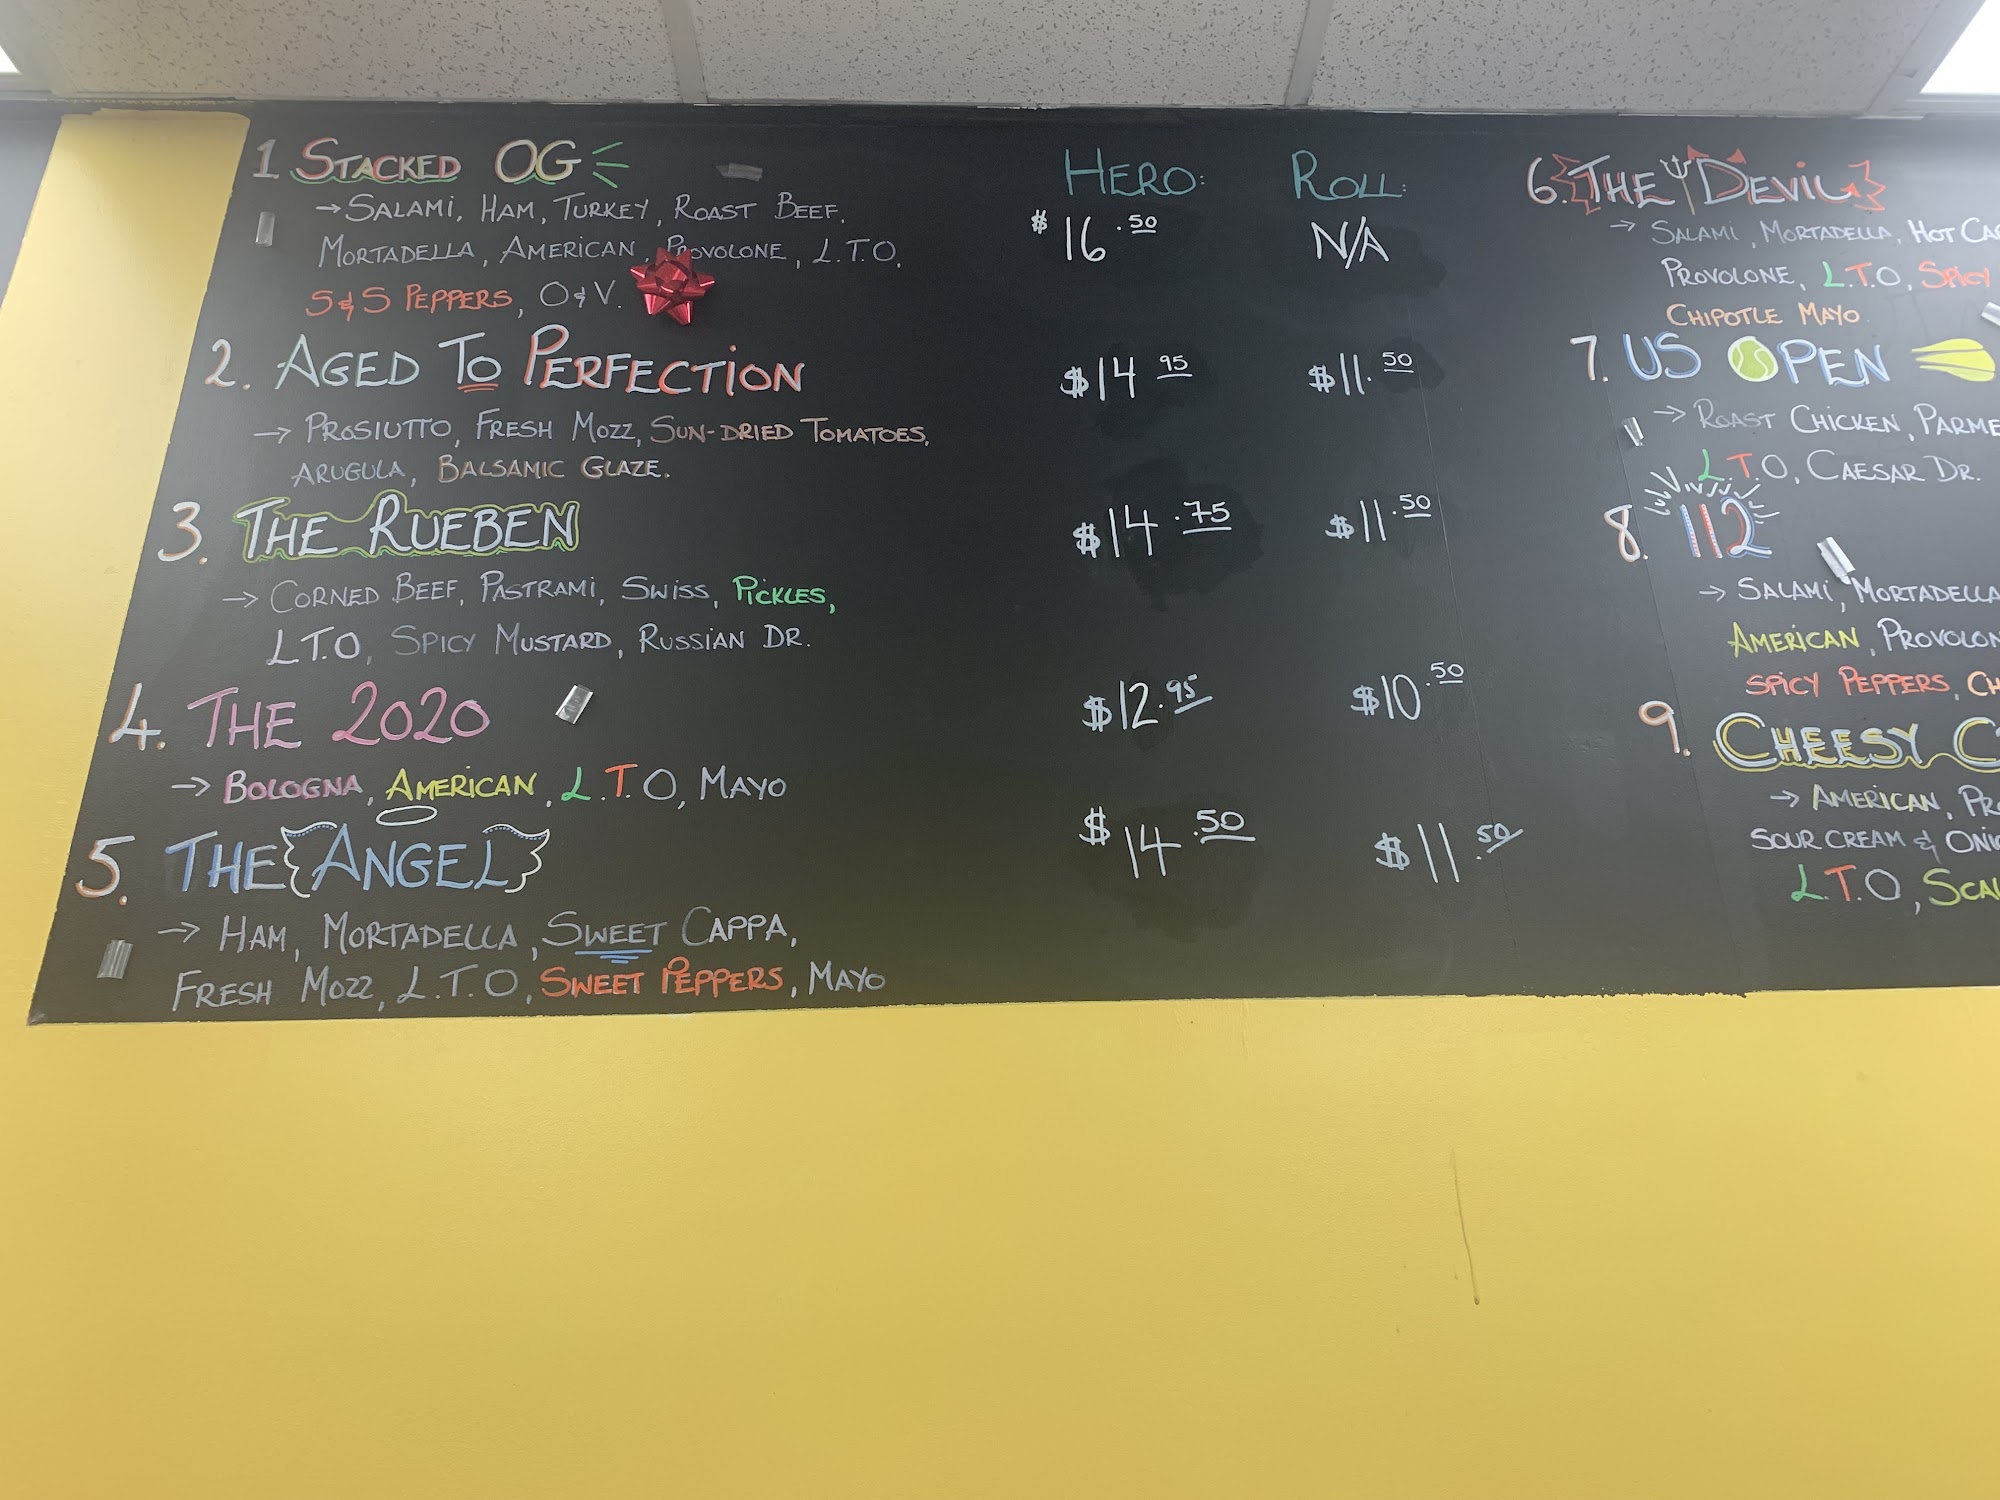 1 STACKED OG
→ SALAMI, HAM, TURKEY, ROAST BEEF,
MORTADELLA, AMERICAN, PROVOLONE, L.T.O,
S & S PEPPERS, O & V.
2. AGED TO PERFECTION
→ PROSIUTTO, FRESH MOZZ, SUN-DRIED TOMATOES,
ARUGULA, BALSAMIC GLAZE.
3. THE RUEBEN
→ CORNED BEEF, PASTRAMI, SWISS, PICKLES,
L.T.O, SPICY MUSTARD, RUSSIAN DR.
4. THE 2020
→ BOLOGNA, AMERICAN, L.T.O, MAYO
5. THE ANGEL
→ HAM, MORTADELLA, SWEET CAPPA,
FRESH MOZZ, L.T.O, SWEET PEPPERS, MAYO
HERO: ROLL:
$16.50 N/A
$14 95 $11.50
$14.75 $11.50
$12.95 $10.50
$14.50 $11.50
6. THE DEVIL
→ SALAMI, MORTADELLA, HOT
PROVOLONE, L.T.O, SPICY
CHIPOTLE MAYO
7. US OPEN
→ ROAST CHICKEN, PARME
L.T.O, CAESAR DR.
8. 112
→ SALAMI, MORTADELLA
AMERICAN, PROVOLON
SPICY PEPPERS, CH
9. CHEESY C
→ AMERICAN, PR
SOUR CREAM & ONI
L.T.O, SCAL